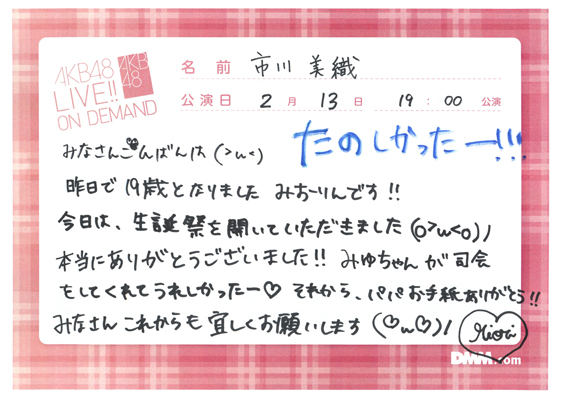 AKB48
LIVE!!
ON DEMAND
AKB
48
名前 市川美織
公演日 2月13日 19:00 公演
たのしかったー!!!
みなさんこんばんは(>ω<)
昨日で19歳となりました みおりんです!!
今日は、生誕祭を開いていただきました(o>ω<o)ノ
本当にありがとうございました!! みゆちゃんが司会
をしてくれてうれしかったー♡ それから、パパお手紙ありがとう!!
みなさんこれからも宜しくお願いします(♡ω♡)ノ
Miori
DMM.com